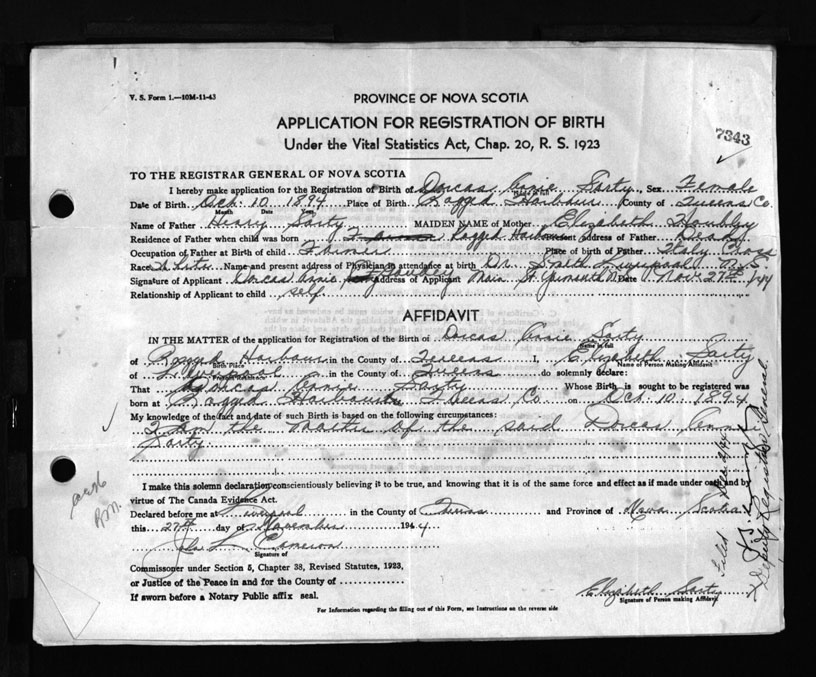 V. S. Form 1.—10M-11-43
PROVINCE OF NOVA SCOTIA
APPLICATION FOR REGISTRATION OF BIRTH
7343
Under the Vital Statistics Act, Chap. 20, R. S. 1923
TO THE REGISTRAR GENERAL OF NOVA SCOTIA
I hereby make application for the Registration of Birth of Dorcas Annie Sarty, Sex Female
Name in full
Date of Birth Oct. 10 1894 Place of Birth Ragged Harbour County of Queens Co
Month Date Year
Name of Father Henry Sarty MAIDEN NAME of Mother Elizabeth
Residence of Father when child was born Ragged Harbour Present address of Father Dead
Occupation of Father at Birth of child Farmer Place of birth of Father Italy Cross
Race White Name and present address of Physician in attendance at birth Dr. Smith Liverpool N.S.
Signature of Applicant Dorcas Annie Address of Applicant Main St Yarmouth Date Nov. 27th /44
Relationship of Applicant to child self.
AFFIDAVIT
IN THE MATTER of the application for Registration of the Birth of Dorcas Annie Sarty
Name in full
of Ragged Harbour in the County of Queens I, Elizabeth Sarty
Birth Place Name of Person Making Affidavit
of Liverpool in the County of Queens do solemnly declare:
Present Residence
That Dorcas Annie Sarty Whose Birth is sought to be registered was
born at Ragged Harbour Queens Co on Oct. 10. 1894
My knowledge of the fact and date of such Birth is based on the following circumstances:
I am the Mother of the said Dorcas Ann
Sarty
I make this solemn declaration conscientiously believing it to be true, and knowing that it is of the same force and effect as if made under oath and by
virtue of The Canada Evidence Act.
Declared before me at Liverpool in the County of Queens and Province of Nova Scotia
this 27th day of November 1944
Cameron
Signature of
Commissioner under Section 5, Chapter 38, Revised Statutes, 1923,
or Justice of the Peace in and for the County of
If sworn before a Notary Public affix seal.
Elizabeth Sarty
Signature of Person making Affidavit
For Information regarding the filling out of this Form, see Instructions on the reverse side
Filed
Deputy Registrar General